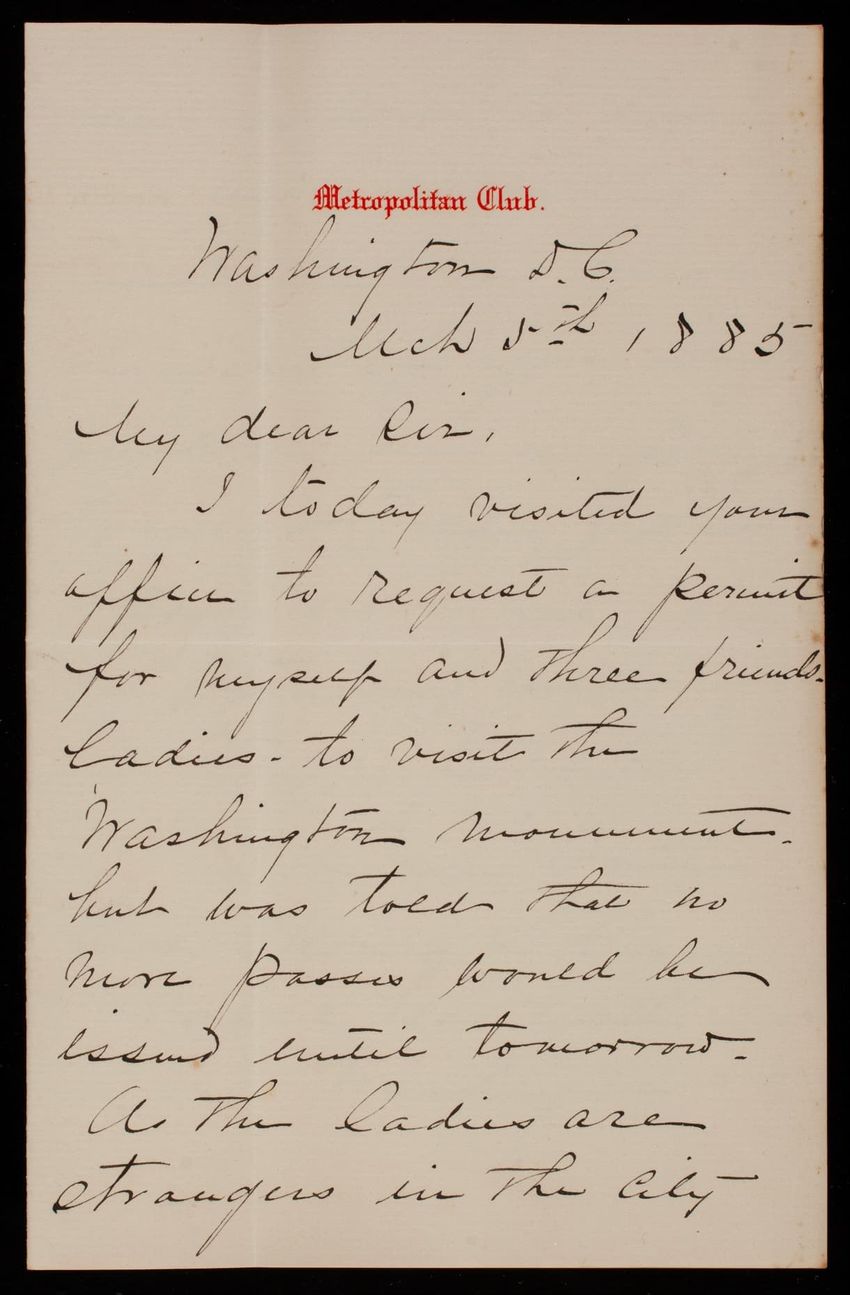 Metropolitan Club.
Washington D.C.
Mch 5th, 1885
My dear Sir,
I today visited your
office to request a permit
for myself and three friends-
ladies- to visit the
Washington monument-
but was told that no
more passes would be
issued until tomorrow-
As the ladies are
strangers in the city